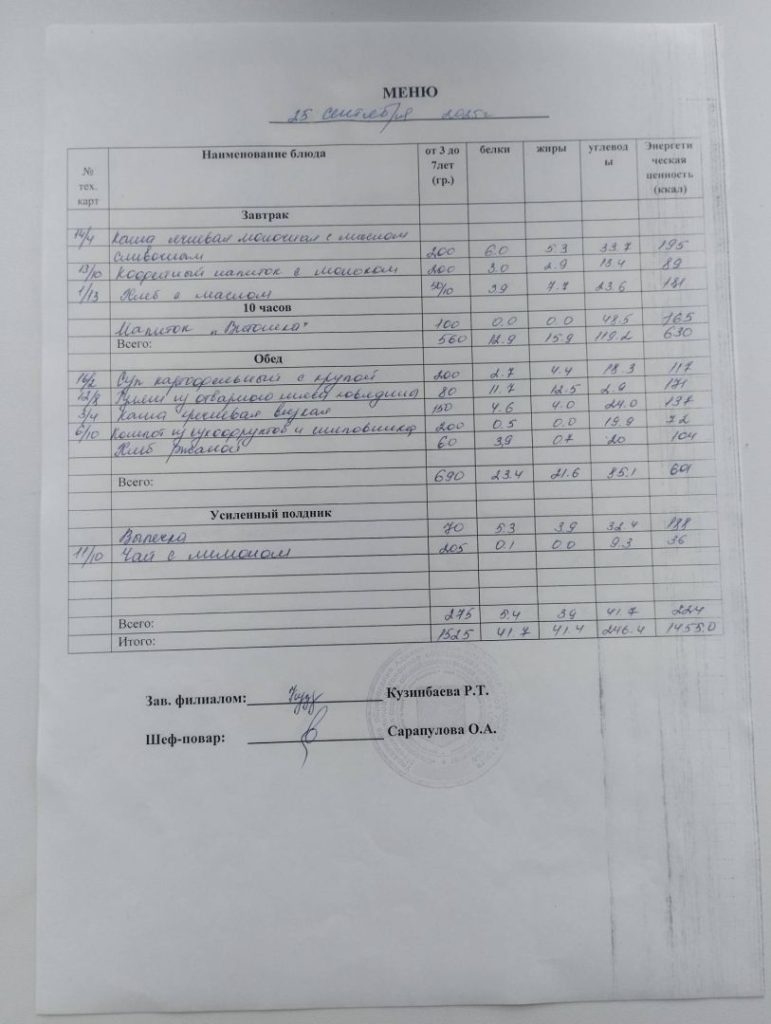 МЕНЮ
25 сентября 2025г
№ тех. карт Наименование блюда от 3 до 7лет (гр.) белки жиры углеводы Энергетическая ценность (ккал)
Завтрак
14/4 Каша ячневая молочная с маслом
сливочным 200 6.0 5.3 33.7 195
13/10 Кофейный напиток с молоком 200 3.0 2.9 13.4 89
1/13 Хлеб с маслом 50/10 3.9 7.7 23.6 181
10 часов
Напиток „Витошка" 100 0.0 0.0 48.5 165
Всего: 560 12.9 15.9 119.2 630
Обед
16/2 Суп картофельный с крупой 200 2.7 4.4 18.3 117
12/8 Гуляш из отварного мяса говядина 80 11.7 12.5 2.9 171
3/4 Каша гречневая вязкая 150 4.6 4.0 24.0 137
6/10 Компот из сухофруктов и шиповника 200 0.5 0.0 19.9 72
Хлеб ржаной 60 3,9 0.7 20 104
Всего: 690 23.4 21.6 85.1 601
Усиленный полдник
Выпечка 70 5.3 3.9 32.4 188
11/10 Чай с лимоном 205 0.1 0.0 9.3 36
Всего: 275 5.4 3.9 41.7 224
Итого: 1525 41.7 41.4 246.4 1455.0
Зав. филиалом: Кузинбаева Р.Т.
Шеф-повар: Сарапулова О.А.